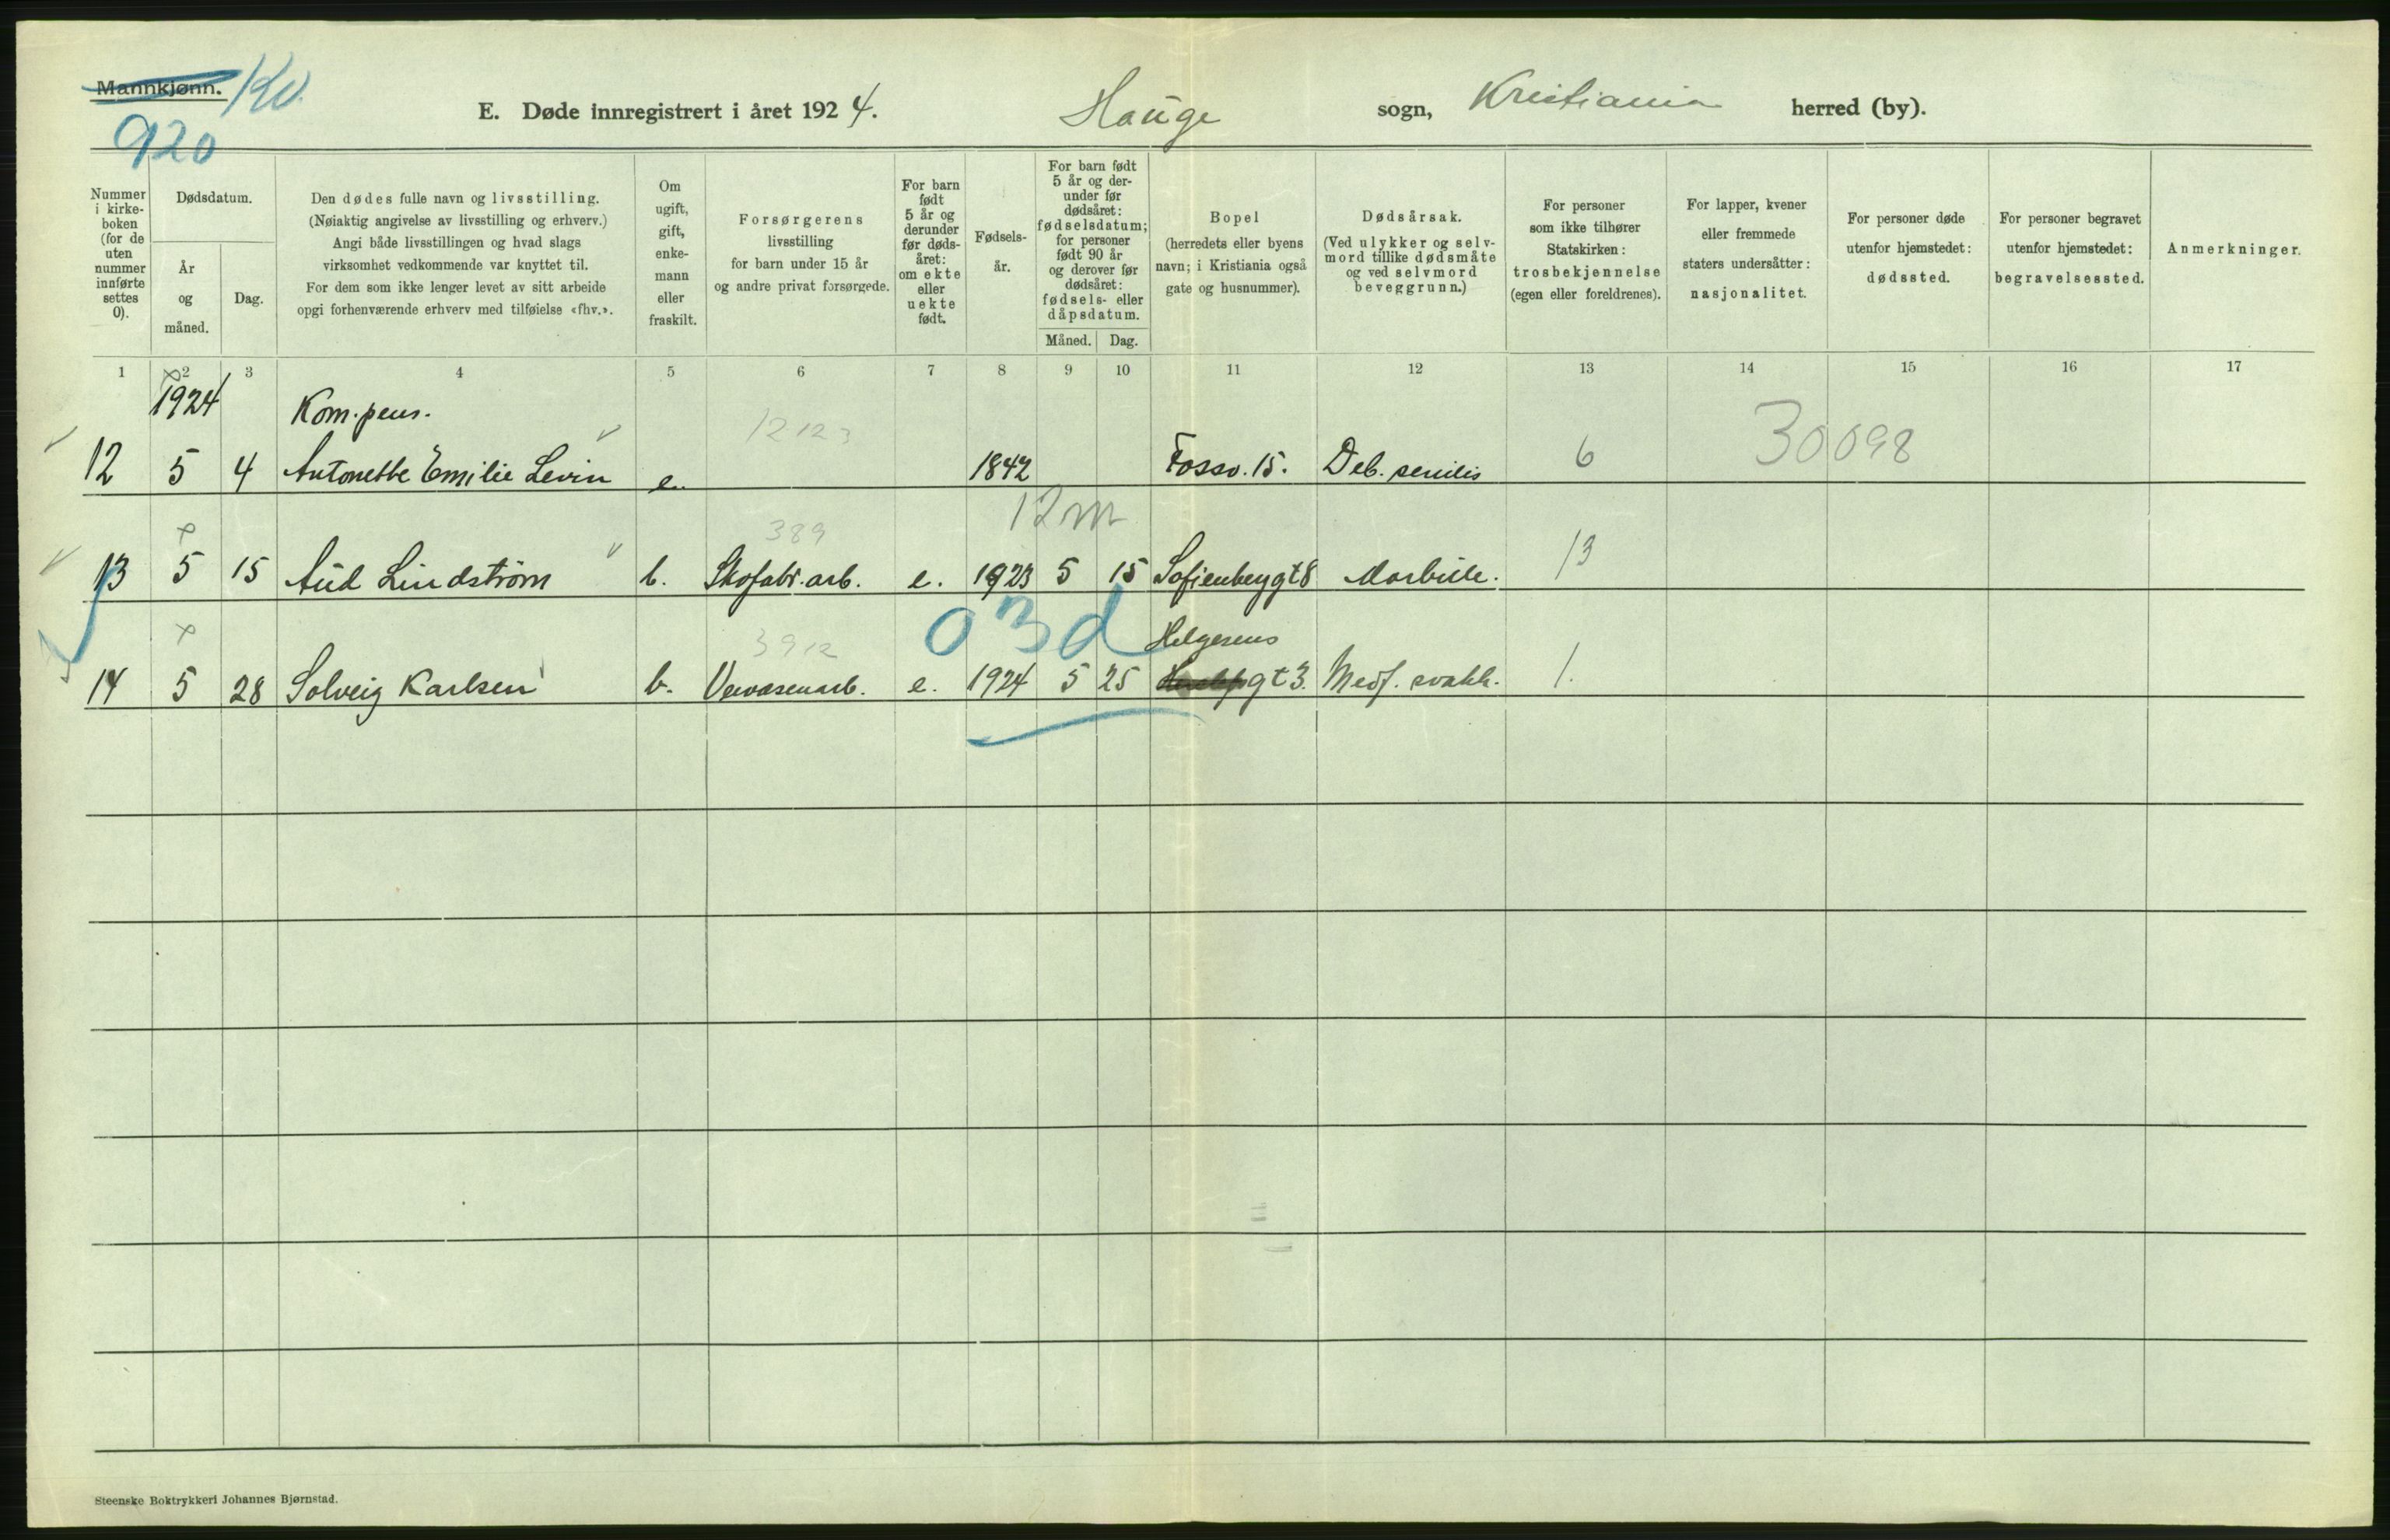 Mannkjønn. Kv.
920
E. Døde innregistrert i året 1924. Hauge sogn, Kristiania herred (by).
Nummer i kirke- boken (for de uten nummer innførte settes 0).
Dødsdatum.
År og måned.
Dag.
Den dødes fulle navn og livsstilling.
(Nøiaktig angivelse av livsstilling og erhverv.)
Angi både livsstillingen og hvad slags
virksomhet vedkommende var knyttet til.
For dem som ikke lenger levet av sitt arbeide
opgi forhenværende erhverv med tilføielse «fhv.».
Om ugift, gift, enke- mann eller fraskilt.
Forsørgerens
livsstilling
for barn under 15 år
og andre privat forsørgede.
For barn født 5 år og derunder før døds- året: om ekte eller uekte født.
Fødsels- år.
For barn født 5 år og der- under før dødsåret: fødselsdatum; for personer født 90 år og derover før dødsåret: fødsels- eller dåpsdatum.
Måned. Dag.
Bopel
(herredets eller byens
navn; i Kristiania også
gate og husnummer).
Dødsårsak.
(Ved ulykker og selv-
mord tillike dødsmåte
og ved selvmord
beveggrunn.)
For personer
som ikke tilhører
Statskirken:
trosbekjennelse
(egen eller foreldrenes).
For lapper, kvener
eller fremmede
staters undersåtter:
nasjonalitet.
For personer døde
utenfor hjemstedet:
dødssted.
For personer begravet
utenfor hjemstedet:
begravelsessted.
Anmerkninger.
1 2 3 4 5 6 7 8 9 10 11 12 13 14 15 16 17
1924 Kom. pens. 12123
12 5 4 Antonette Emilie Levin e. 1842 Fossv. 15. Deb. senilis 6 30098
389 12 m
13 5 15 Aud Lindström b. Skofabr. arb. e. 1923 5 15 Sofienberggt 8 Morbille. 13
3912 03d Helgesens
14 5 28 Solveig Karlsen b. Veivæsenarb. e. 1924 5 25 gt 3. Medf. svakh. 1.
Steenske Boktrykkeri Johannes Bjørnstad.